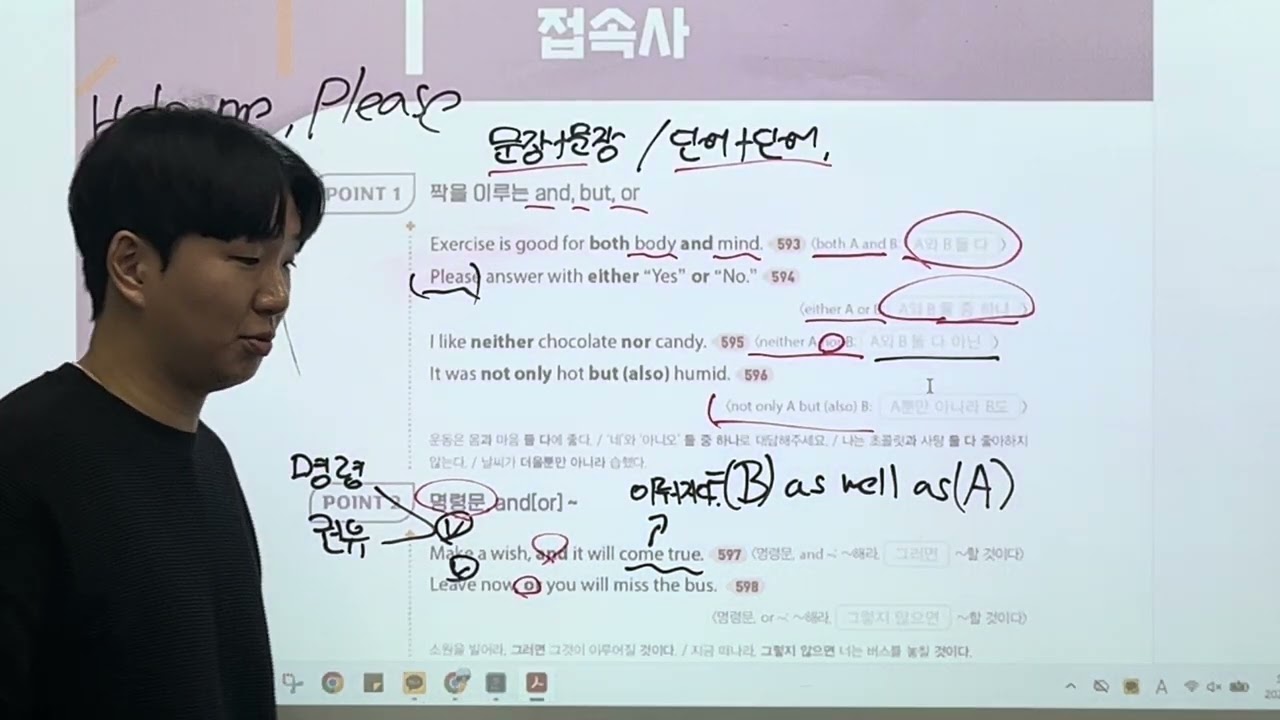 접속사
Please
문장+문장 / 단어+단어.
POINT 1 짝을 이루는 and, but, or
Exercise is good for both body and mind. 593 〈both A and B: A와 B 둘 다〉
Please answer with either “Yes” or “No.” 594
〈either A or B: A와 B 둘 중 하나〉
I like neither chocolate nor candy. 595 〈neither A nor B: A와 B 둘 다 아닌〉
It was not only hot but (also) humid. 596
〈not only A but (also) B: A뿐만 아니라 B도〉
운동은 몸과 마음 둘 다에 좋다. / ‘네’와 ‘아니오’ 둘 중 하나로 대답해주세요. / 나는 초콜릿과 사탕 둘 다 좋아하지
않는다. / 날씨가 더울뿐만 아니라 습했다.
=(B) as well as (A)
명령
이뤄지다.
POINT 2 명령문 and[or] ~
권유
Make a wish, and it will come true. 597 〈명령문, and ~: ~해라, 그러면 ~할 것이다〉
Leave now, or you will miss the bus. 598
〈명령문, or ~: ~해라, 그렇지 않으면 ~할 것이다〉
소원을 빌어라, 그러면 그것이 이루어질 것이다. / 지금 떠나라, 그렇지 않으면 너는 버스를 놓칠 것이다.